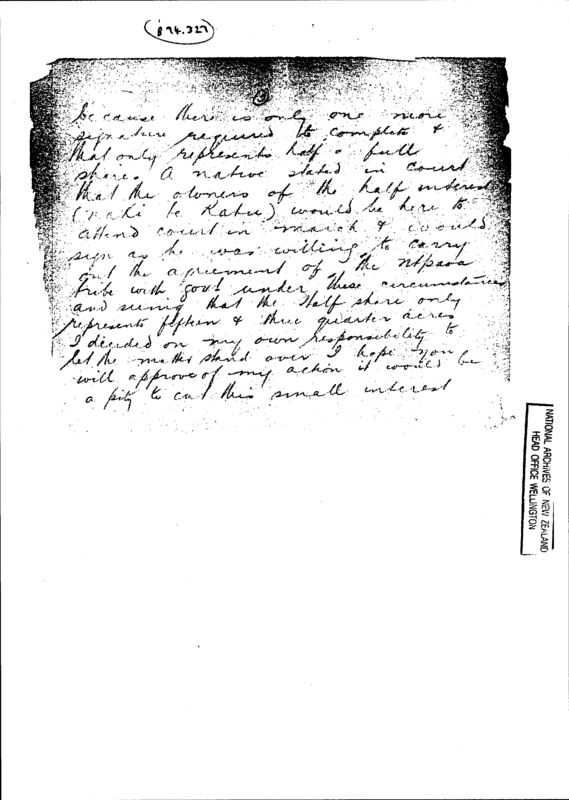 874.327
2
because there is only one more
signature required to complete &
that only represents half a full
share. A native stated in Court
that the owners of the half interest
(naki te Katu) would be here to
attend court in march & would
sign as he was willing to carry
out the agriement of the Ntpaoa
tribe with govt under these circumstances
and seeing that the Half share only
represents fifteen & three quarter acres
I decided on my own responsibility to
let the matter stand over I hope you
will approve of my action it would be
a pity to cut this small interest
NATIONAL ARCHIVES OF NEW ZEALAND
HEAD OFFICE WELLINGTON